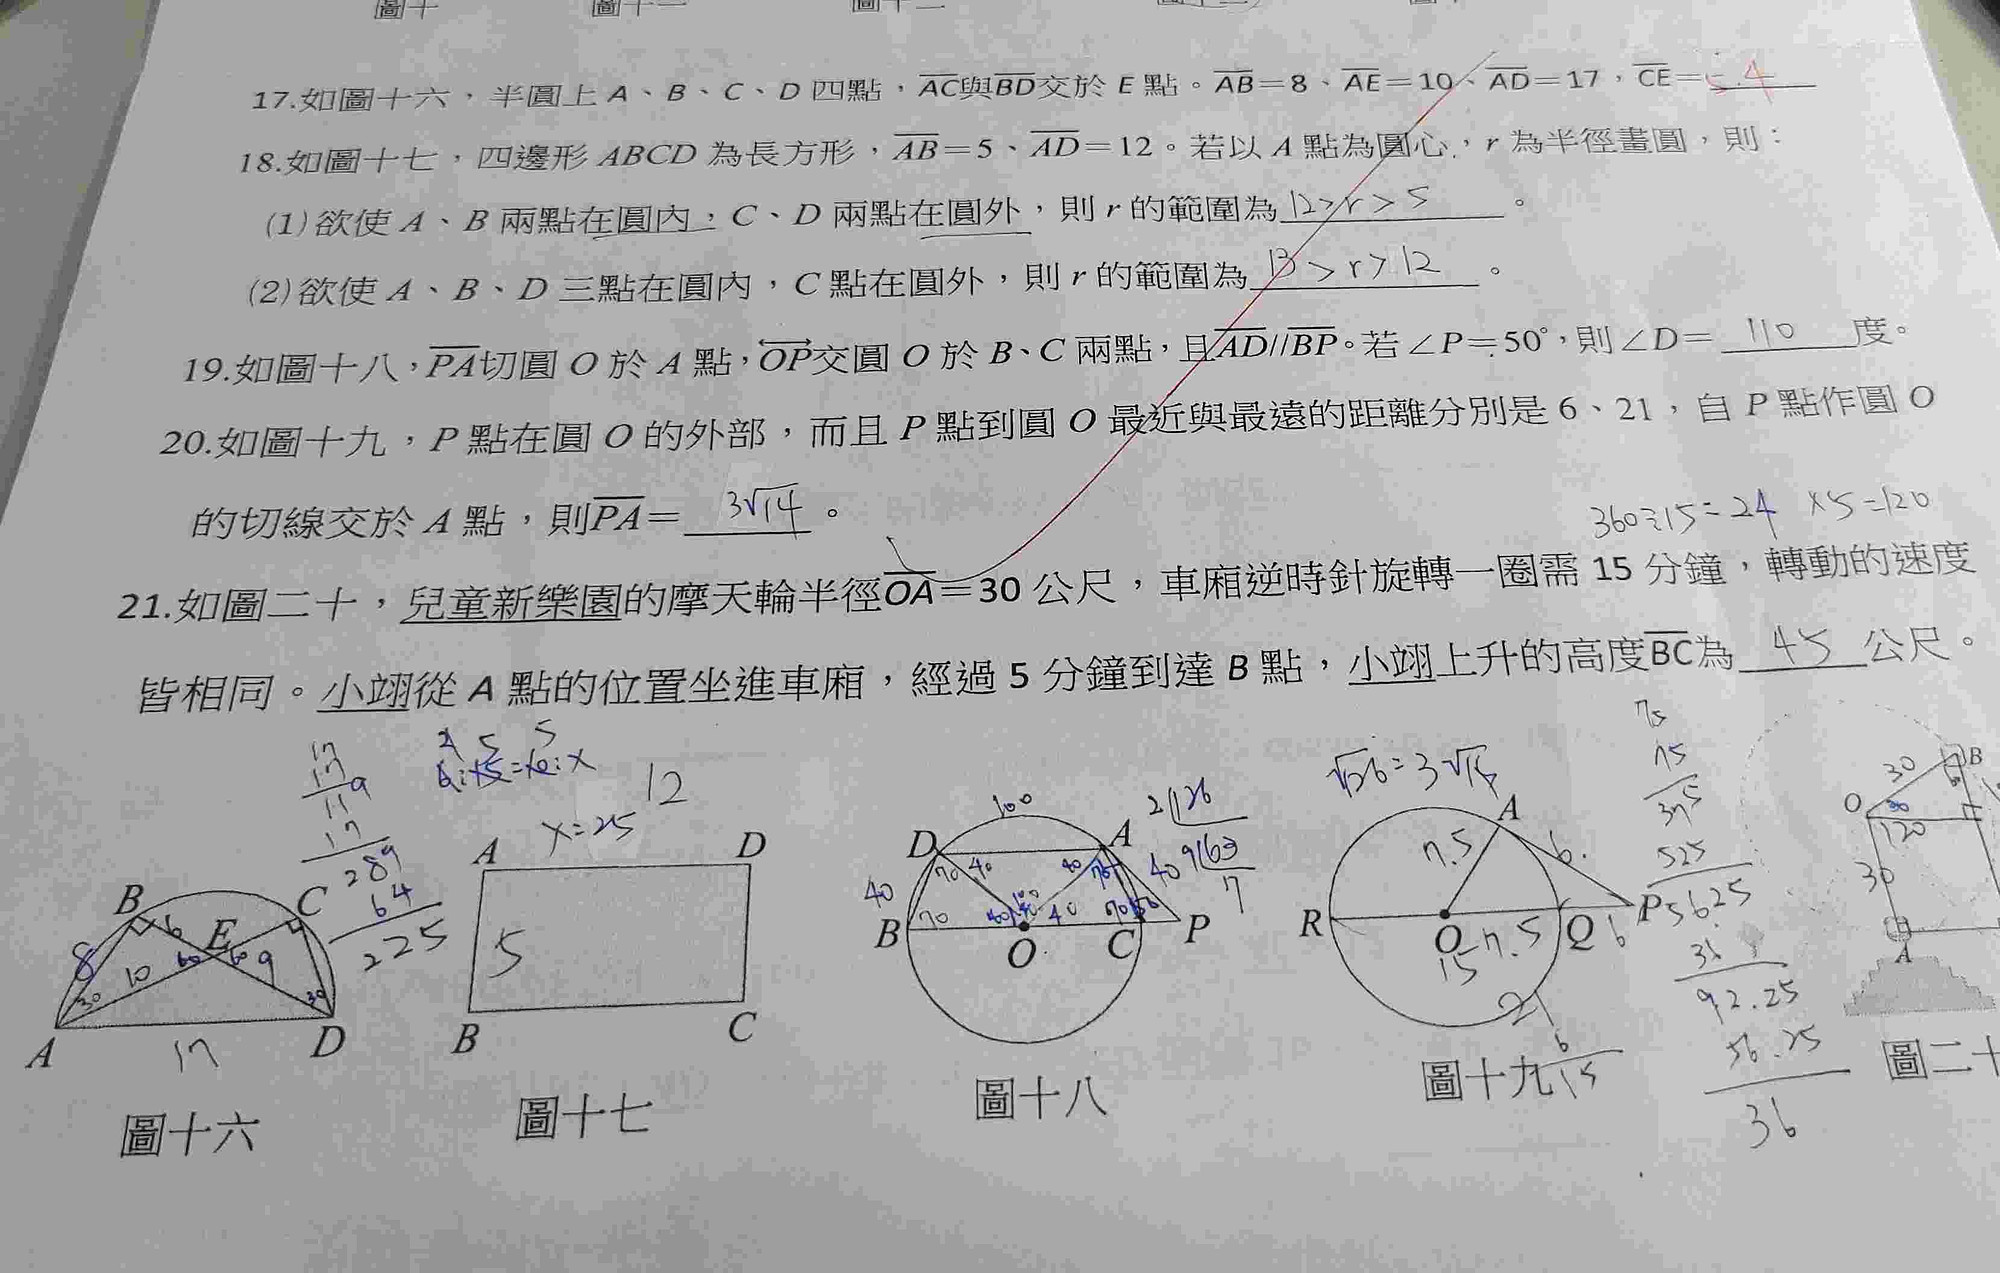 圖十 圖十一 圖十二
17.如圖十六，半圓上 A、B、C、D 四點，AC與BD交於 E 點。AB=8、AE=10、AD=17，CE=5.4
18.如圖十七，四邊形 ABCD 為長方形，AB=5、AD=12。若以 A 點為圓心，r 為半徑畫圓，則：
(1)欲使 A、B 兩點在圓內，C、D 兩點在圓外，則 r 的範圍為 12>r>5 。
(2)欲使 A、B、D 三點在圓內，C 點在圓外，則 r 的範圍為 13>r>12 。
19.如圖十八，PA切圓 O 於 A 點，OP交圓 O 於 B、C 兩點，且AD//BP。若∠P=50°，則∠D= 110 度。
20.如圖十九，P 點在圓 O 的外部，而且 P 點到圓 O 最近與最遠的距離分別是 6、21，自 P 點作圓 O
的切線交於 A 點，則PA= 3√14 。
360÷15=24 ×5=120
21.如圖二十，兒童新樂園的摩天輪半徑OA=30 公尺，車廂逆時針旋轉一圈需 15 分鐘，轉動的速度
皆相同。小翊從 A 點的位置坐進車廂，經過 5 分鐘到達 B 點，小翊上升的高度BC為 45 公尺。
17
17
119
17
289
64
225
x=25
12
A D
5
B C
圖十七
B C
8 6 E
10 60 60 9
30 30
A D
17
圖十六
100
D A
40 70 40 40 70 40
B 70 O 40 C P
圖十八
2|126
9|63
7
√126=3√14
A
7.5 6
R O 7.5 Q 6 P
15
21
6
15
圖十九
75
75
375
525
5625
36
92.25
56.25
36
30 B
O 30
120
30
A
圖二十